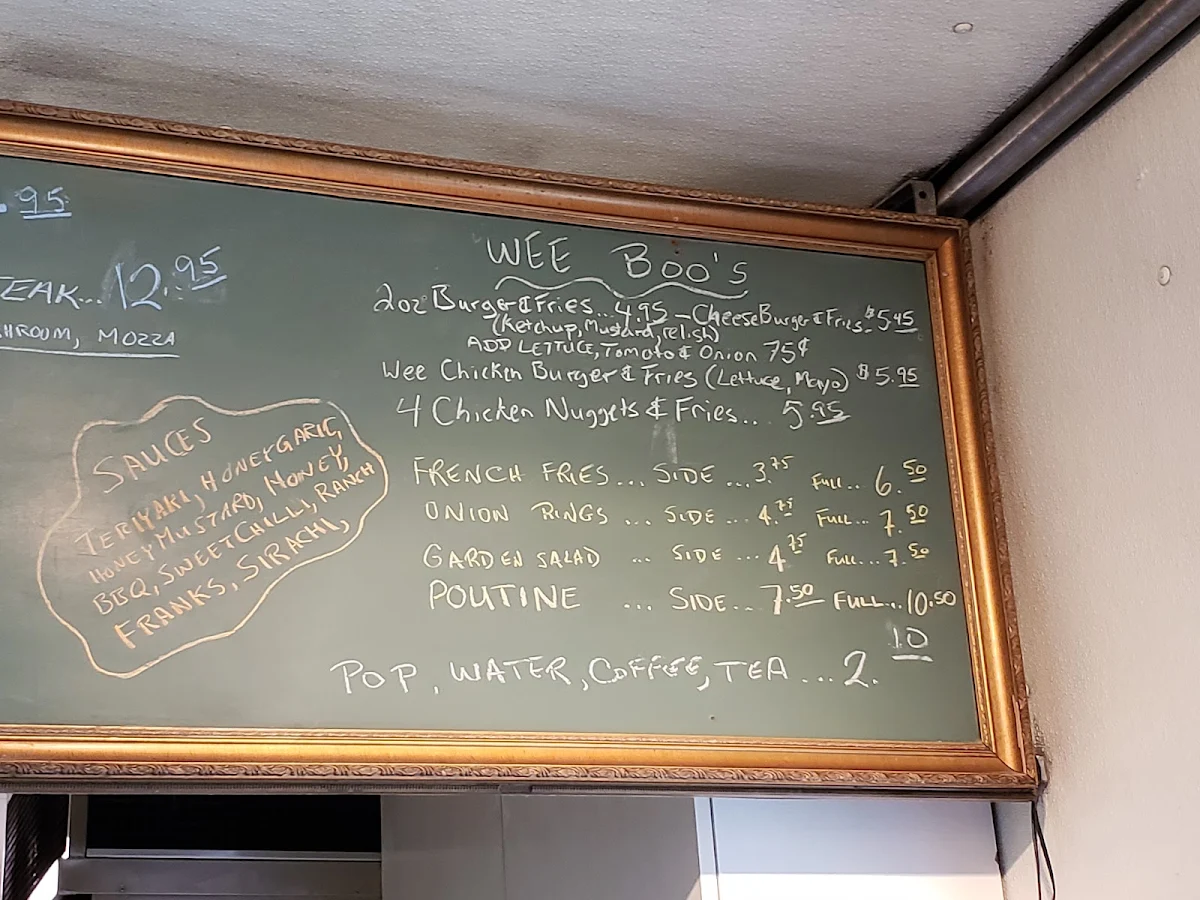 95
EAK... 12.95
HROOM, MOZZA
SAUCES
TERIYAKI, HONEYGARIC,
HONEY MUSTARD, HONEY,
BBQ, SWEET CHILLI, RANCH
FRANKS, SIRACHI,
WEE BOO'S
2oz Burger & Fries... 4.95 - Cheese Burger & Fries - $5.45
(Ketchup, Mustard, relish)
ADD LETTUCE, Tomato & Onion 75¢
Wee Chicken Burger & Fries (Lettuce, Mayo) $5.95
4 Chicken Nuggets & Fries... 5.95
FRENCH FRIES... SIDE ...3.75 FULL... 6.50
ONION RINGS ... SIDE ... 4.75 FULL... 7.50
GARDEN SALAD ... SIDE ... 4.75 FULL... 7.50
POUTINE ... SIDE... 7.50 FULL... 10.50
POP, WATER, COFFEE, TEA ... 2.10